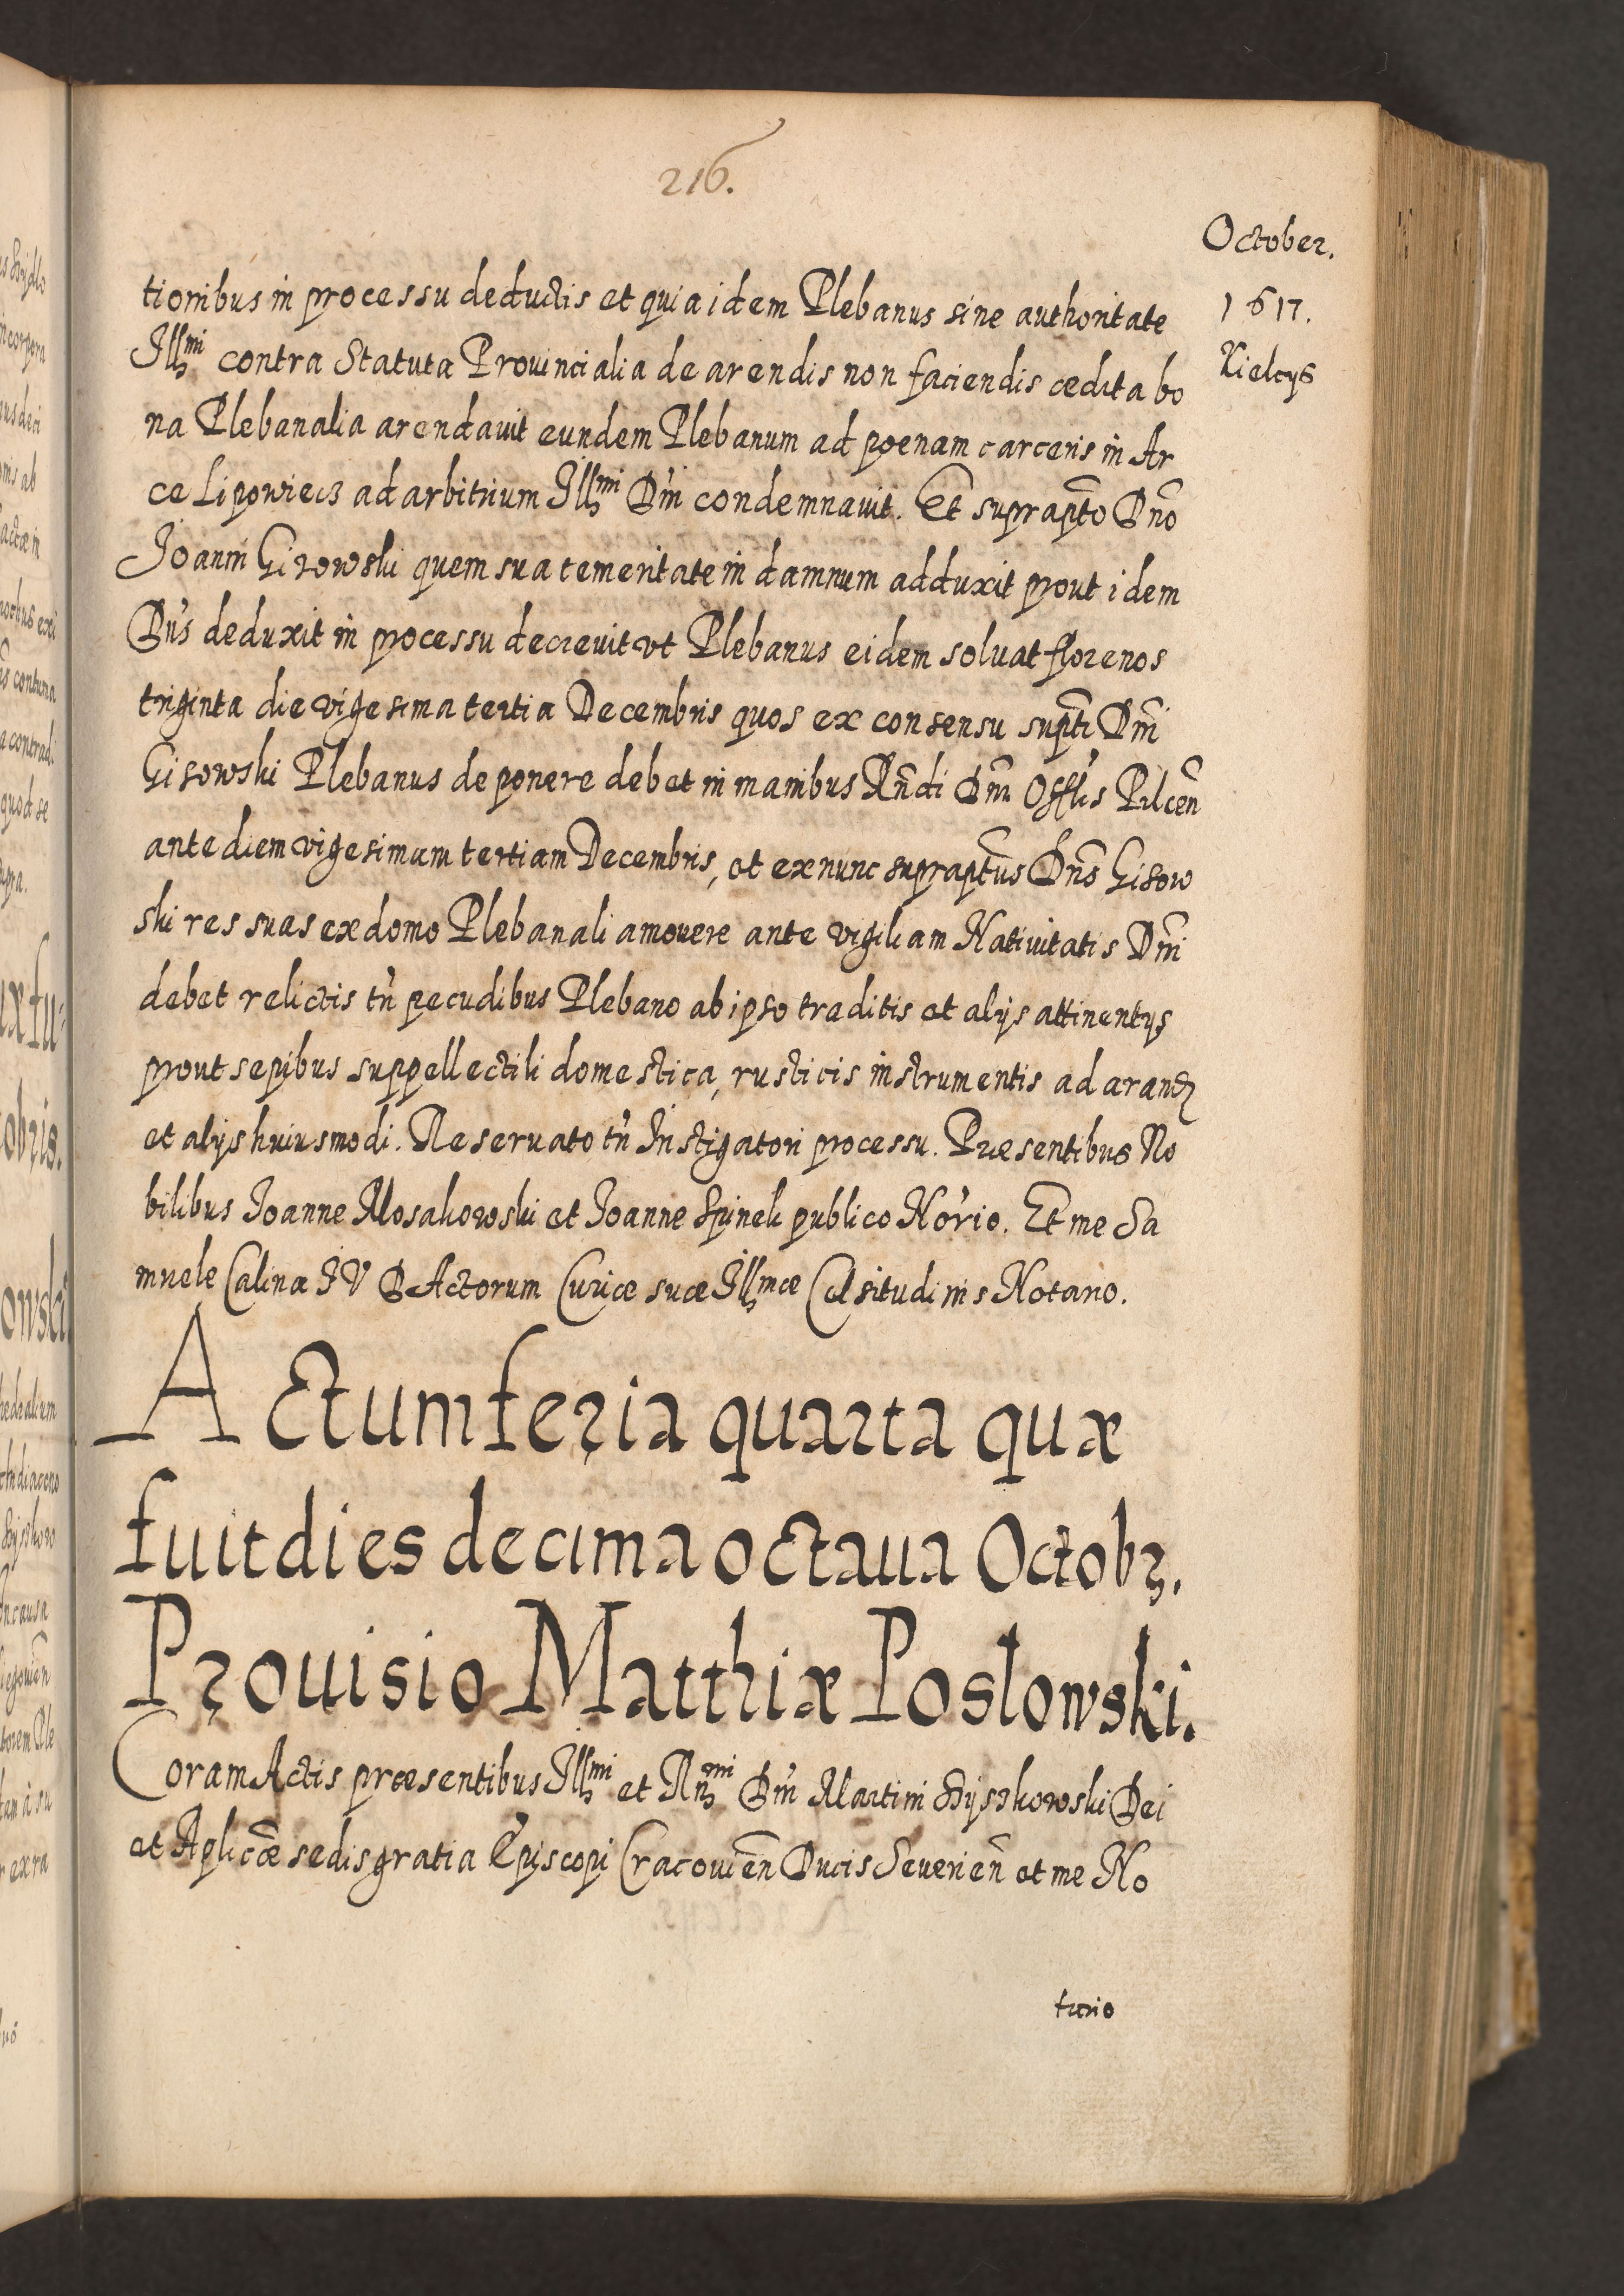 216.
October.
1617.
Kielcys
tionibus in processu deductis et quia idem Plebanus sine authoritate
Illmi contra Statuta Provincialia de arendis non faciendis ædita bo
na Plebanalia arendavit eundem Plebanum ad poenam carceris in Ar
ce Lipowiecz ad arbitrium Illmi Dni condemnavit. Et suprapto Dno
Joanni Gizowski quem sua temeritate in damnum adduxit prout idem
Dns deduxit in processu decrevit vt Plebanus eidem solvat florenos
triginta die vigesima tertia Decembris quos ex consensu supti Dni
Gisowski Plebanus deponere debet in manibus Rndi Dni Offlis Pilcen
ante diem vigesimam tertiam Decembris, et ex nunc supraptus Dns Gisow
ski res suas ex domo Plebanali amovere ante vigiliam Nativitatis Dni
debet relictis tn pecudibus Plebano ab ipso traditis et alijs attinentijs
prout sepibus suppellectili domestica, rusticis instrumentis ad arand
et alijs huiusmodi. Reservato tn Instigatori processu. Præsentibus No
bilibus Joanne Mosakowski et Joanne Spinek publico Norio. Et me Sa
muele Calina JV D Actorum Curiæ suæ Illmæ Celsitudinis Notario.
Actum feria quarta quæ
fuit dies decima octava Octobr.
Provisio Matthiæ Poslowski.
Coram Actis præsentibus Illmi et Rnmi Dni Martini Szyszkowski Dei
et Aplicæ sedis gratia Episcopi Cracovien Ducis Severien et me No
tario